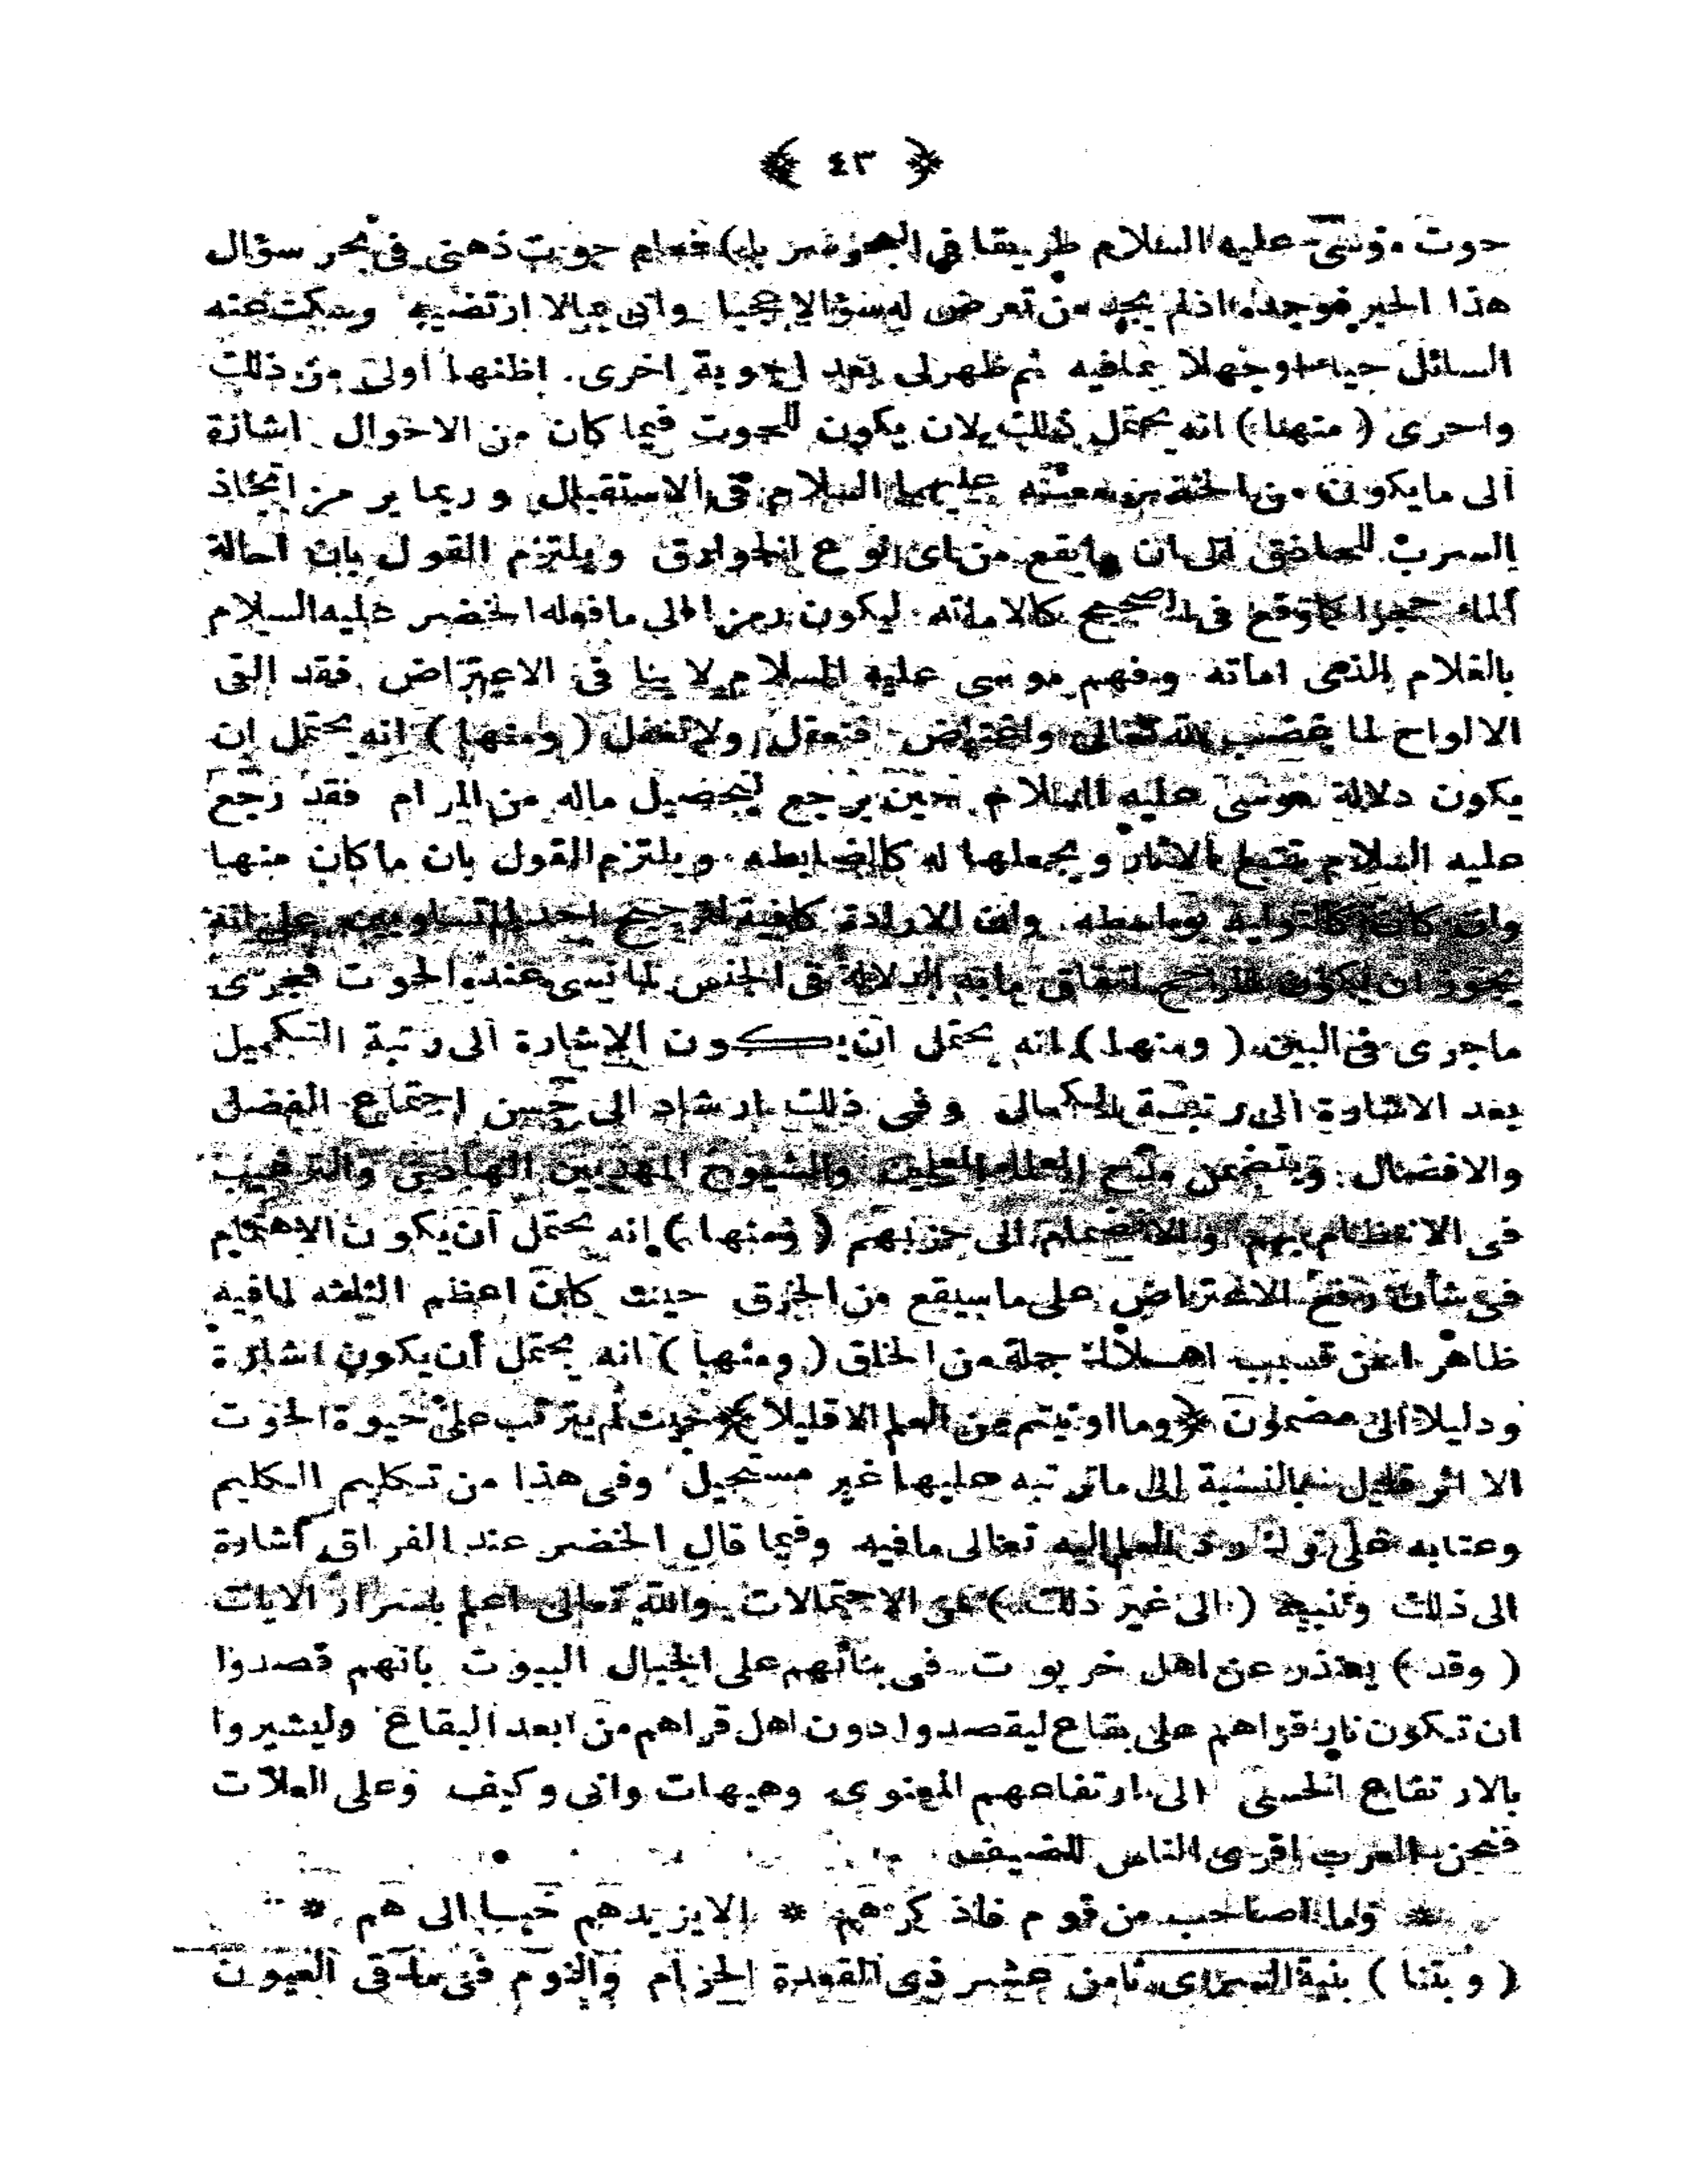 ﴿ ٤٣ ﴾
حوت موسى عليه السلام طريقا في البحر سربا) فعام حوت ذهني في بحر سؤال
هذا الحبر فوجده اذلم يجد من تعرض له سؤالا عجيبا واتى بمالا ارتضيه وسكت عنه
السائل حياء اوجهلا بمافيه ثم ظهرلى بعد اجوبة اخرى اظنها اولى من ذلك
واحرى ( منها ) انه يحتمل ذلك لان يكون للحوت فيما كان من الاحوال اشارة
الى مايكون من الخضر مع عليهما السلام فى الاستقبال وربما يرمز اتخاذ
السرب للحاذق الى ان مايقع من اى نوع الخوارق ويلتزم القول بان احالة
الماء حجرا كاوقع فى الصحيح كالاماته ليكون رمزا الى مافعله الخضر عليه السلام
بالغلام الذى اماته وفهم موسى عليه السلام لا ينا فى الاعتراض فقد القى
الالواح لما غضب لله تعالى واعترض فتعقل ولاتغفل ( ومنها ) انه يحتمل ان
يكون دلالة موسى عليه السلام حين يرجع لتحصيل ماله من المرام فقد رجع
عليه السلام يتتبع الاثار ويجعلها له كالضابطه ويلتزم القول بان ماكان منها
وان كان كا بواسطه وان الارادة كافية لترجيح احد المتساويين على انه
يجوز ان يكون المرجح مابه الدلالة فى الجنس لما نسى عنده الحوت فجرى
ماجرى فى البين ( ومنها ) انه يحتمل ان يكون الاشارة الى رتبة التكميل
بعد الاشارة الى رتبة الكمال وفى ذلك ارشاد الى حسن اجتماع الفضل
والافضال ويتضمن مدح العلماء العاملين والشيوخ المهديين الهادين والترغيب
فى الانتظام بهم والانضمام الى حزبهم ( ومنها ) انه يحتمل ان يكون الاهتمام
فى شأن دفع الاعتراض على ماسيقع من الخرق حيث كان اعظم الثلثه لمافيه
ظاهرا من تسبب اهلاك جملة من الخلق ( ومنها ) انه يحتمل أن يكون اشارة
ودليلا الى مضمون ﴿وما اوتيتم من العلم الاقليلا﴾ حيث لم يترتب على حيوة الحوت
الا اثر قليل بالنسبة الى ماترتبه عليها غير مستحيل وفى هذا من تكليم الكليم
وعتابه على ترك رد العلم اليه تعالى مافيه وفيما قال الخضر عند الفراق اشارة
الى ذلك وتنبيه ( الى غير ذلك ) من الاحتمالات والله تعالى اعلم باسرار الايات
( وقد ) يعتذر عن اهل خربوت فى بنائهم على الجبال البيوت بانهم قصدوا
ان تكون نار قراهم على بقاع ليقصدوا دون اهل قراهم من ابعد البقاع وليشيروا
بالارتفاع الحسى الى ارتفاعهم المعنوى وهيهات وانى وكيف وعلى العلات
فنحن العرب اقرى الناس للضيف
* وما اصاحب من قوم فاذكرهم * الايزيدهم حبا الى هم *
( وبتنا ) بنية السرى ثامن عشر ذى القعدة الحرام والنوم فى مآقى العيون